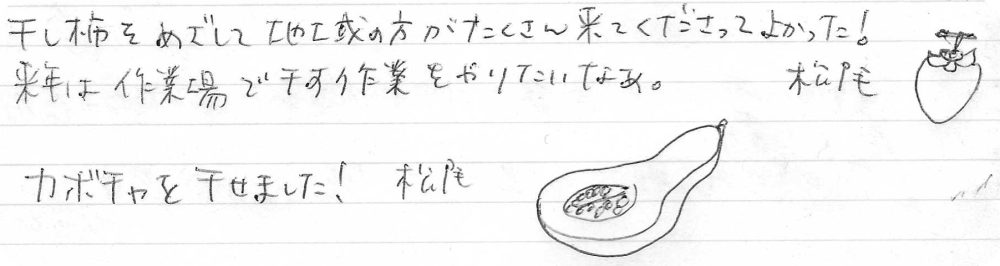 干し柿をめざして地域の方がたくさん来てくださってよかった!
来年は作業場で干す作業をやりたいなあ。 松尾
カボチャを干せました! 松尾